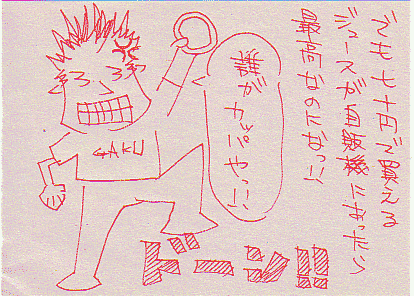 でも七十円で買える
ジュースが自販機になったら
最高なのになっ!!
誰が
カッパやっ!!
GAKU
ドーン!!